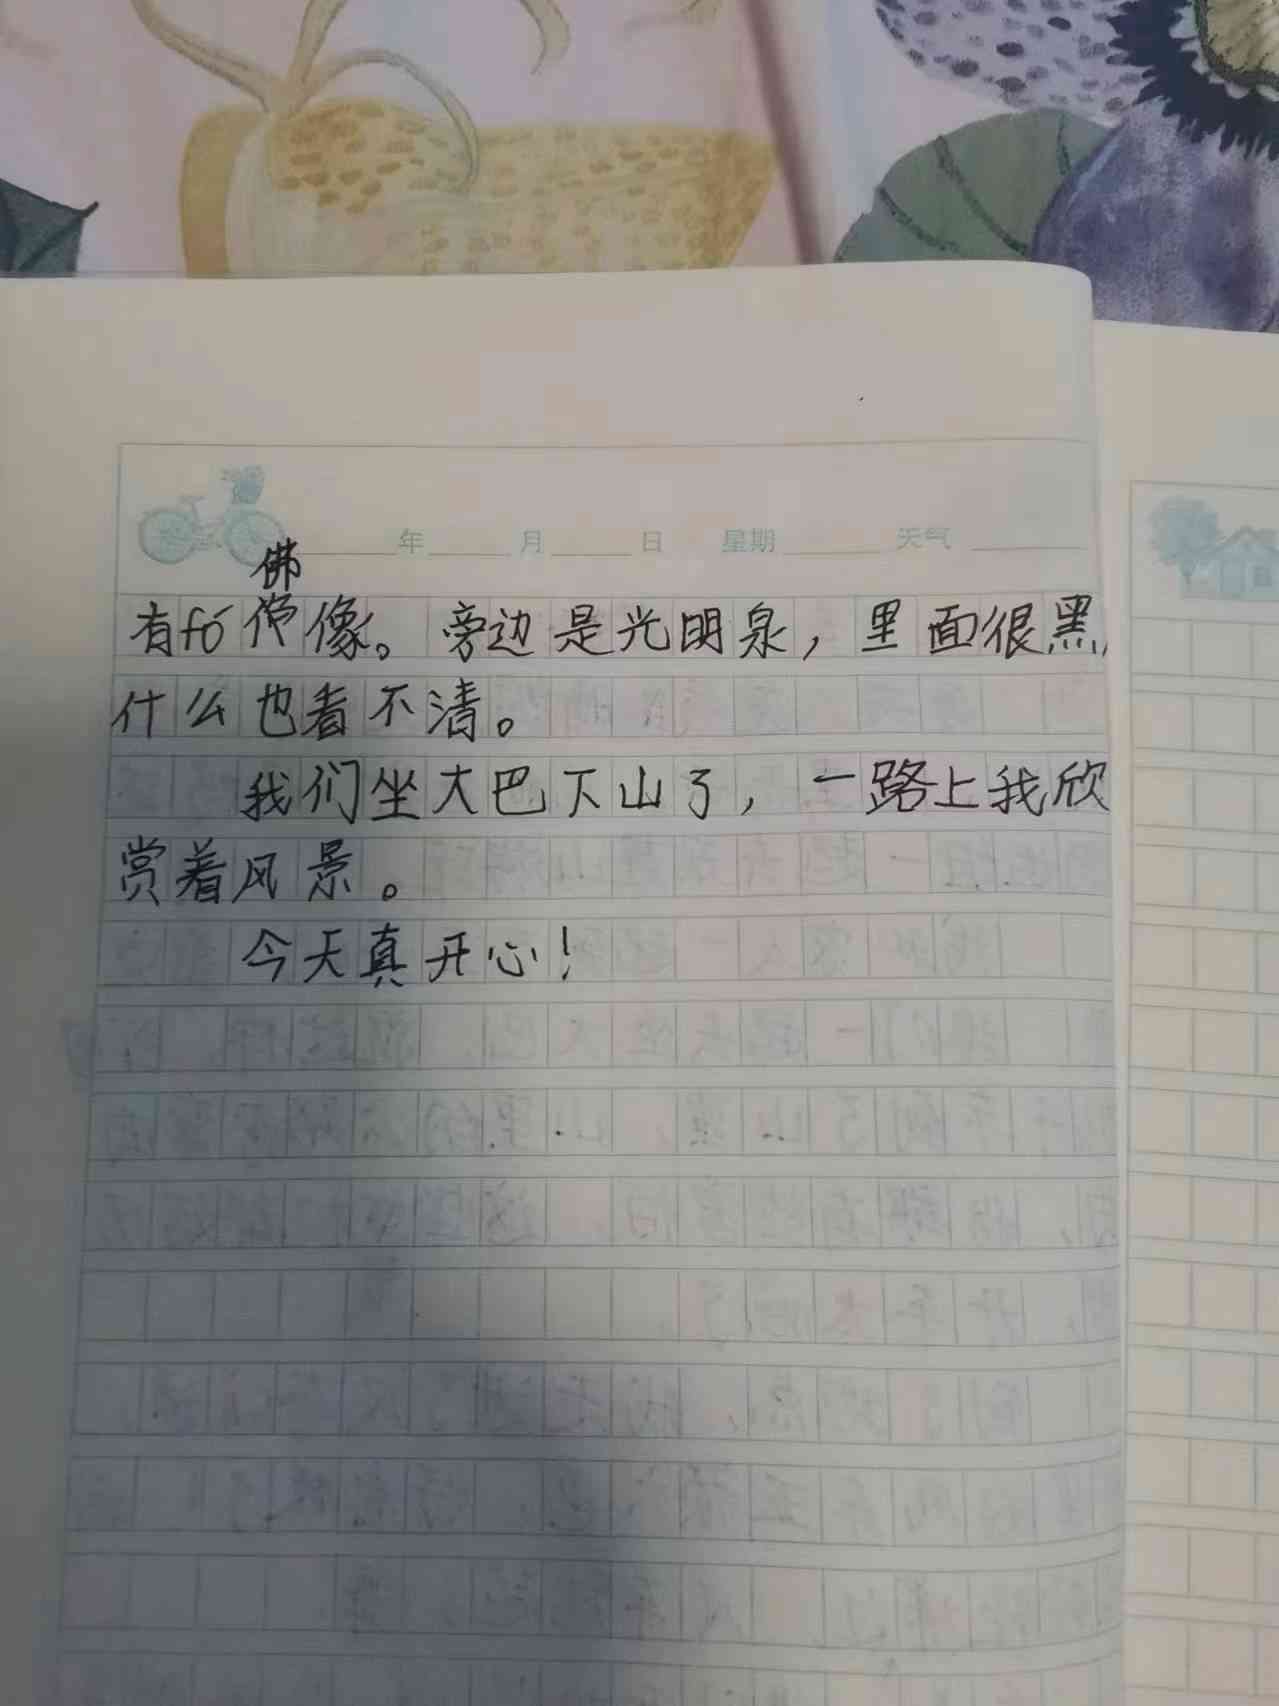 年 月 日 星期 天气
佛
有fó 像。旁边是光明泉，里面很黑，
什么也看不清。
我们坐大巴下山了，一路上我欣
赏着风景。
今天真开心！